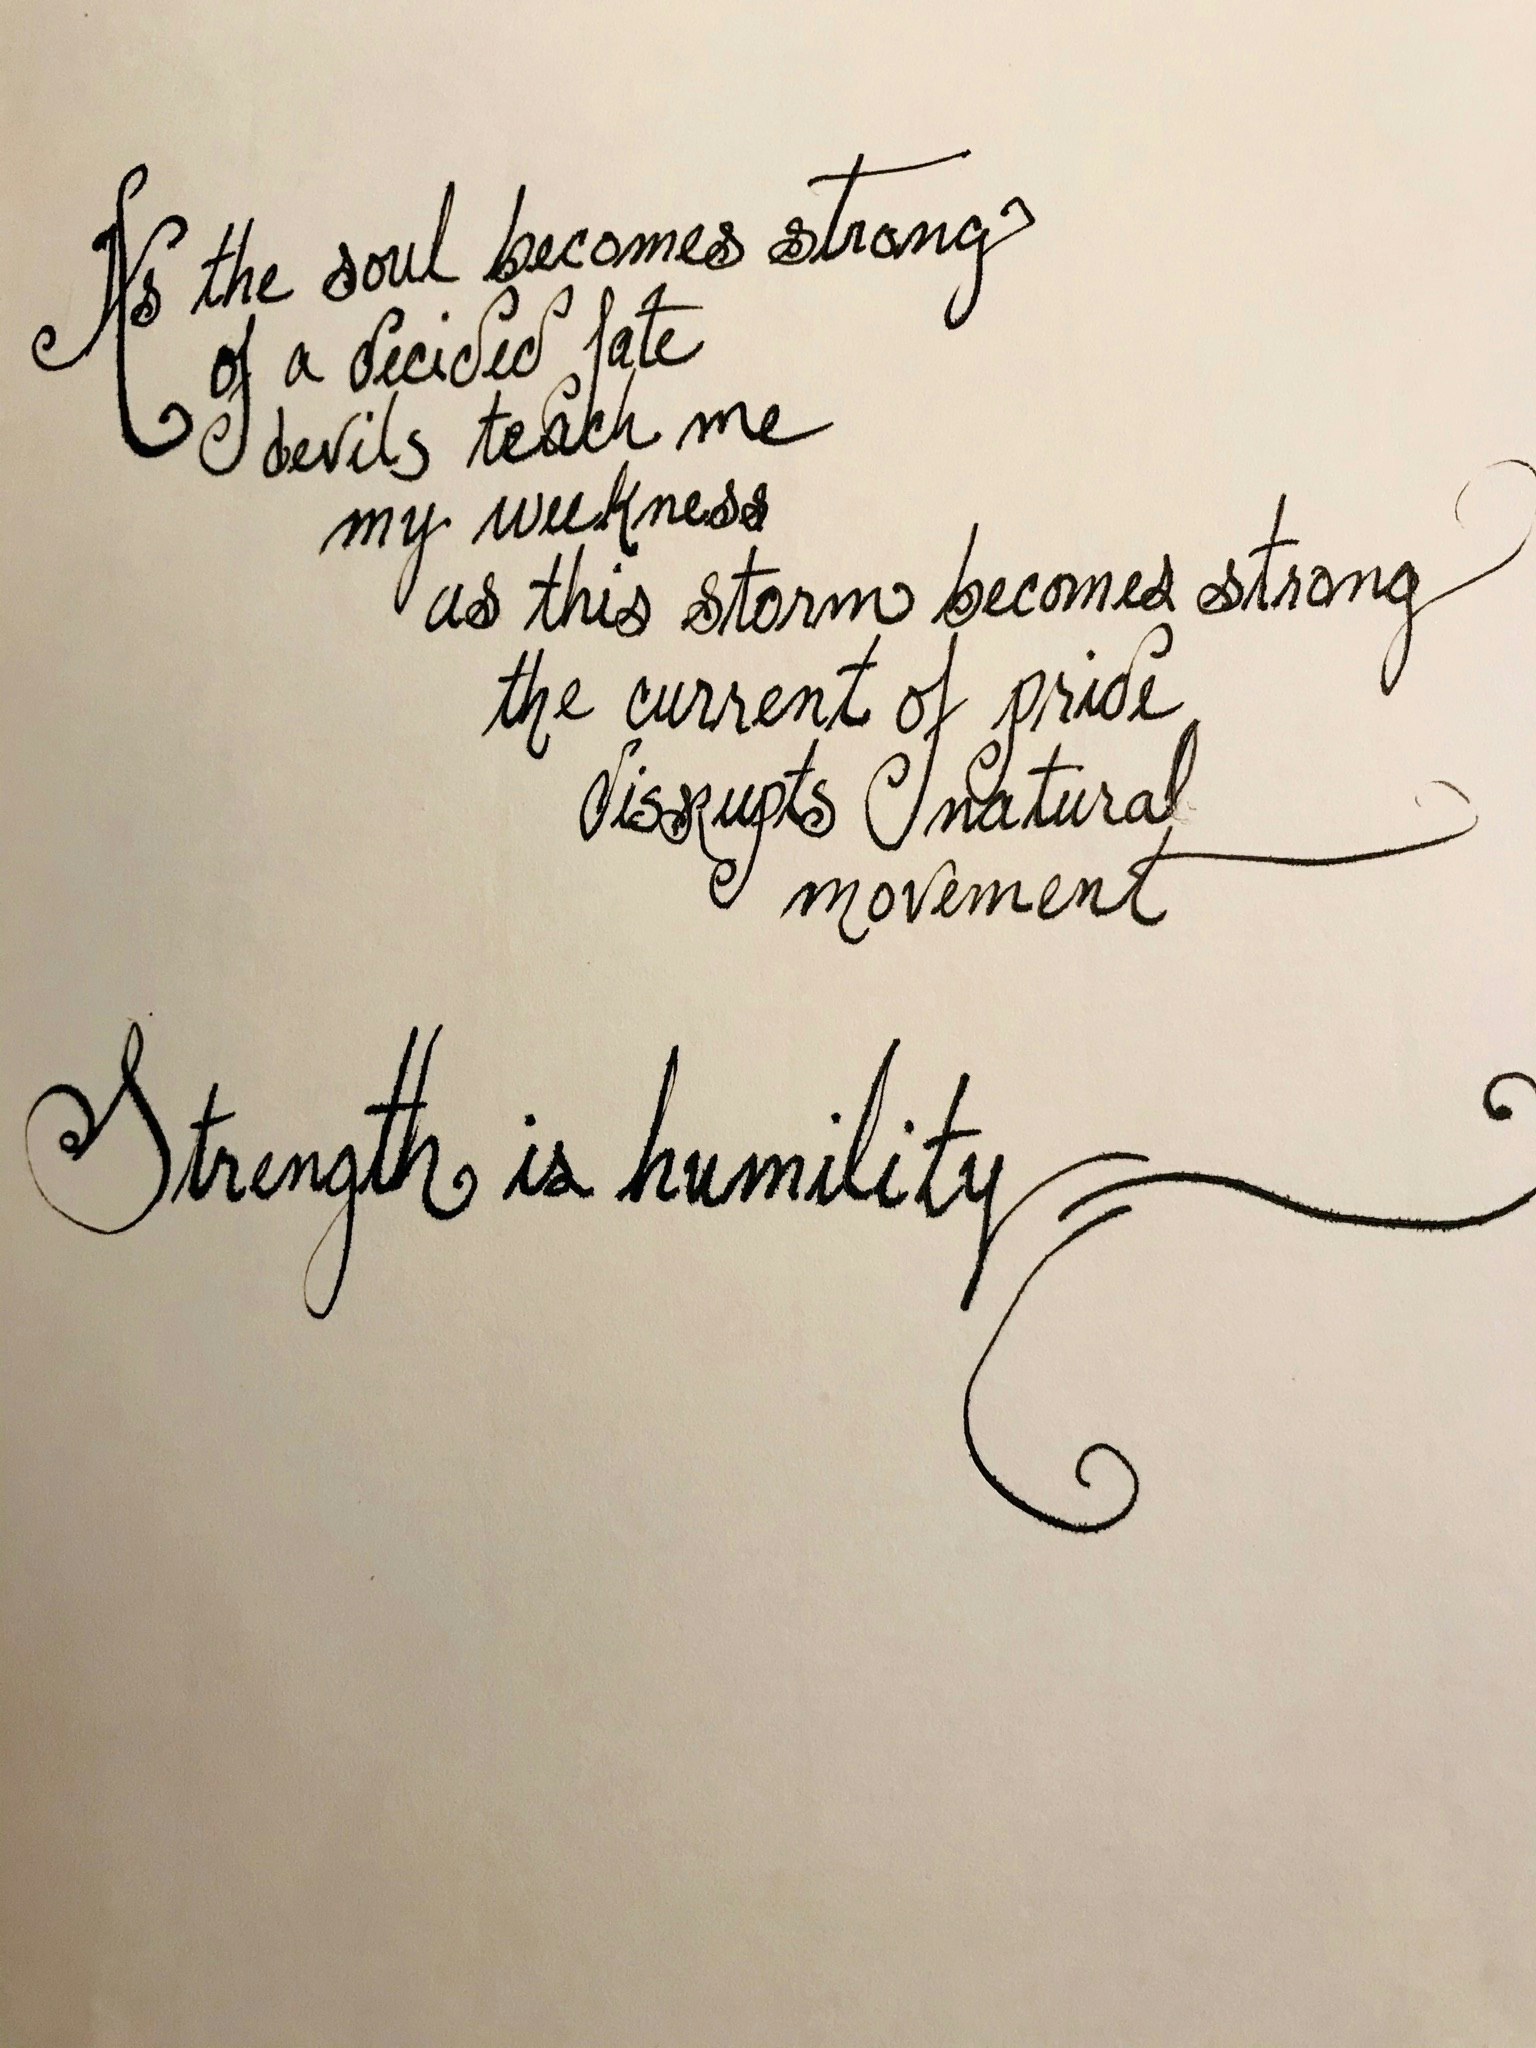 As the soul becomes strong
of a decided fate
devils teach me
my weekness
as this storm becomes strong
the current of pride
disrupts natural
movement
Strength is humility